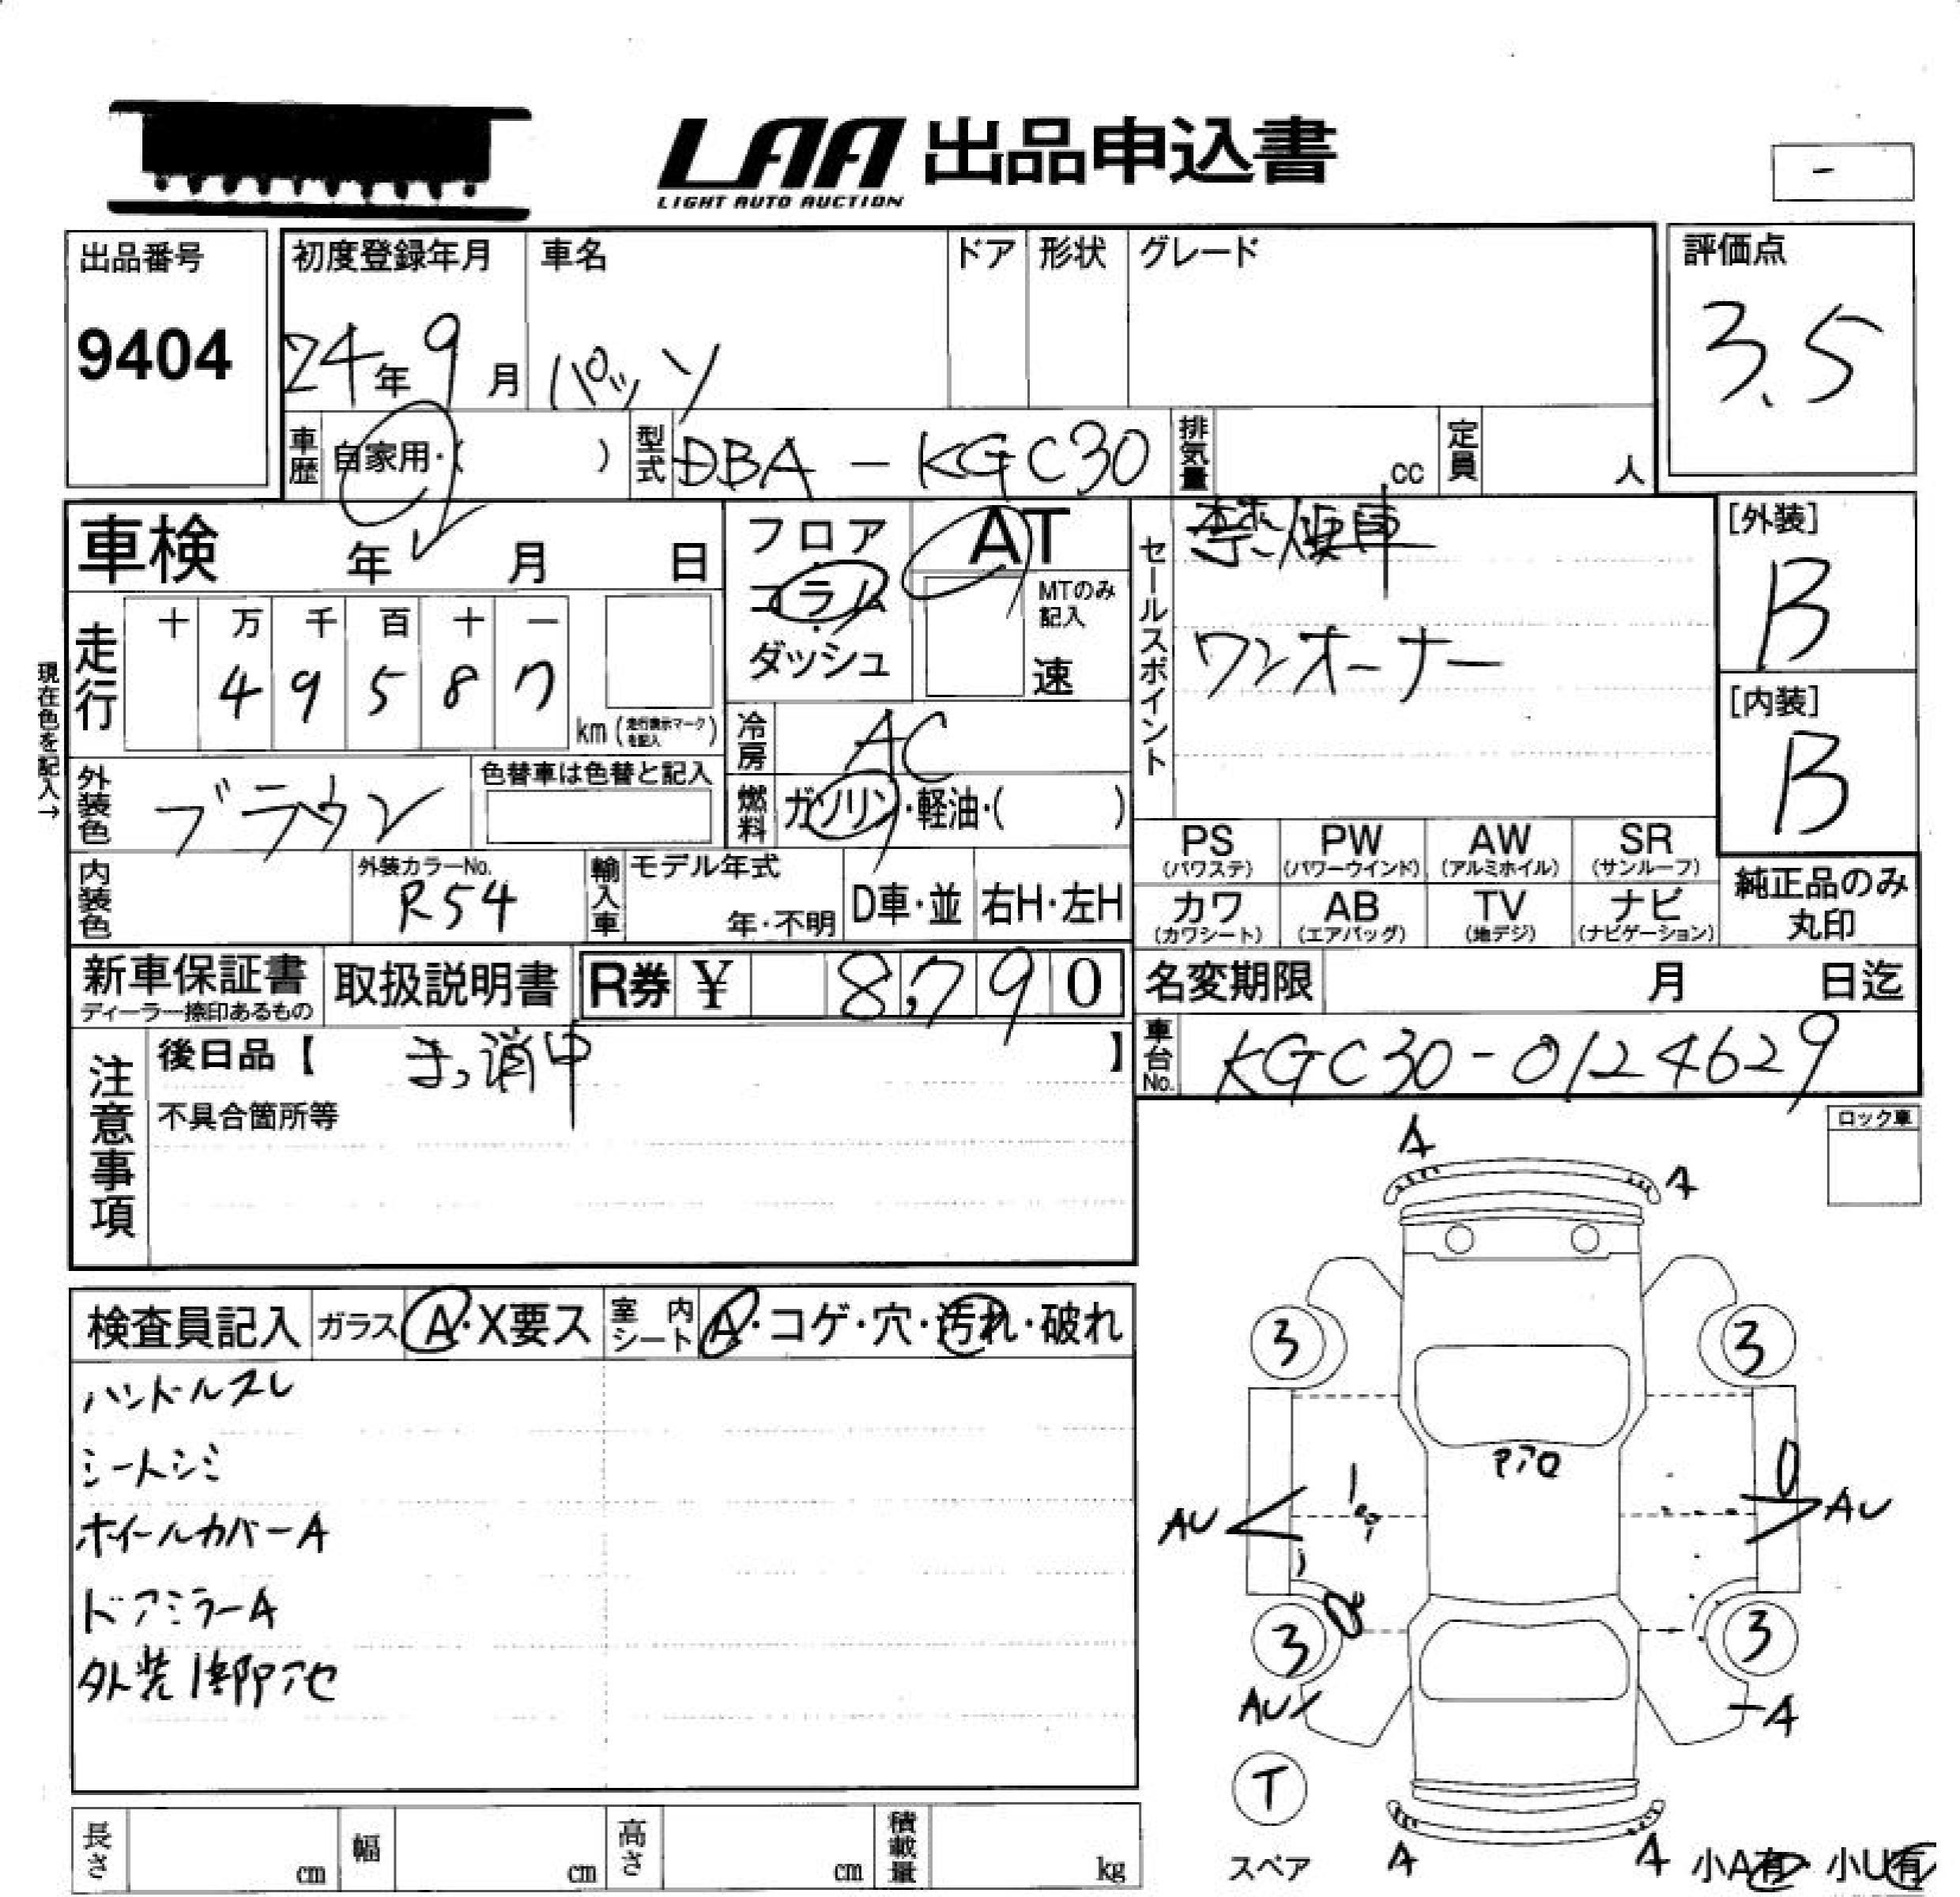 LAA 出品申込書
LIGHT AUTO AUCTION
-
出品番号
9404
初度登録年月 車名 ドア 形状 グレード
24年9月 パッソ
評価点
3.5
車歴 自家用・( ) 型式 DBA-KGC30 排気量 cc 定員 人
車検 年 月 日
フロア・コラム・ダッシュ
AT
MTのみ記入
速
セールスポイント
禁煙車
ワンオーナー
[外装]
B
[内装]
B
現在色を記入→
走行 十 万 千 百 十 一
4 9 5 8 7
km (走行表示マークを記入)
冷房 AC
外装色 ブラウン 色替車は色替と記入
燃料 ガソリン・軽油・( )
内装色 外装カラーNo. R54
輸入車 モデル年式 年・不明 D車・並 右H・左H
PS (パワステ) PW (パワーウインド) AW (アルミホイル) SR (サンルーフ)
カワ (カワシート) AB (エアバッグ) TV (地デジ) ナビ (ナビゲーション)
純正品のみ丸印
新車保証書 ディーラー捺印あるもの 取扱説明書 R券 ¥ 8,790
名変期限 月 日迄
車台No. KGC30-0124629
注意事項
後日品【 まっ消中 】
不具合箇所等
ロック車
検査員記入 ガラス A・X要ス 室内シート A・コゲ・穴・汚れ・破れ
ハンドルスレ
シートシミ
ホイールカバーA
ドアミラーA
外装
A
A
3 3
AU AU
3 3
AU -A
T
スペア
A A
小A有 小U有
長さ cm 幅 cm 高さ cm 積載量 kg